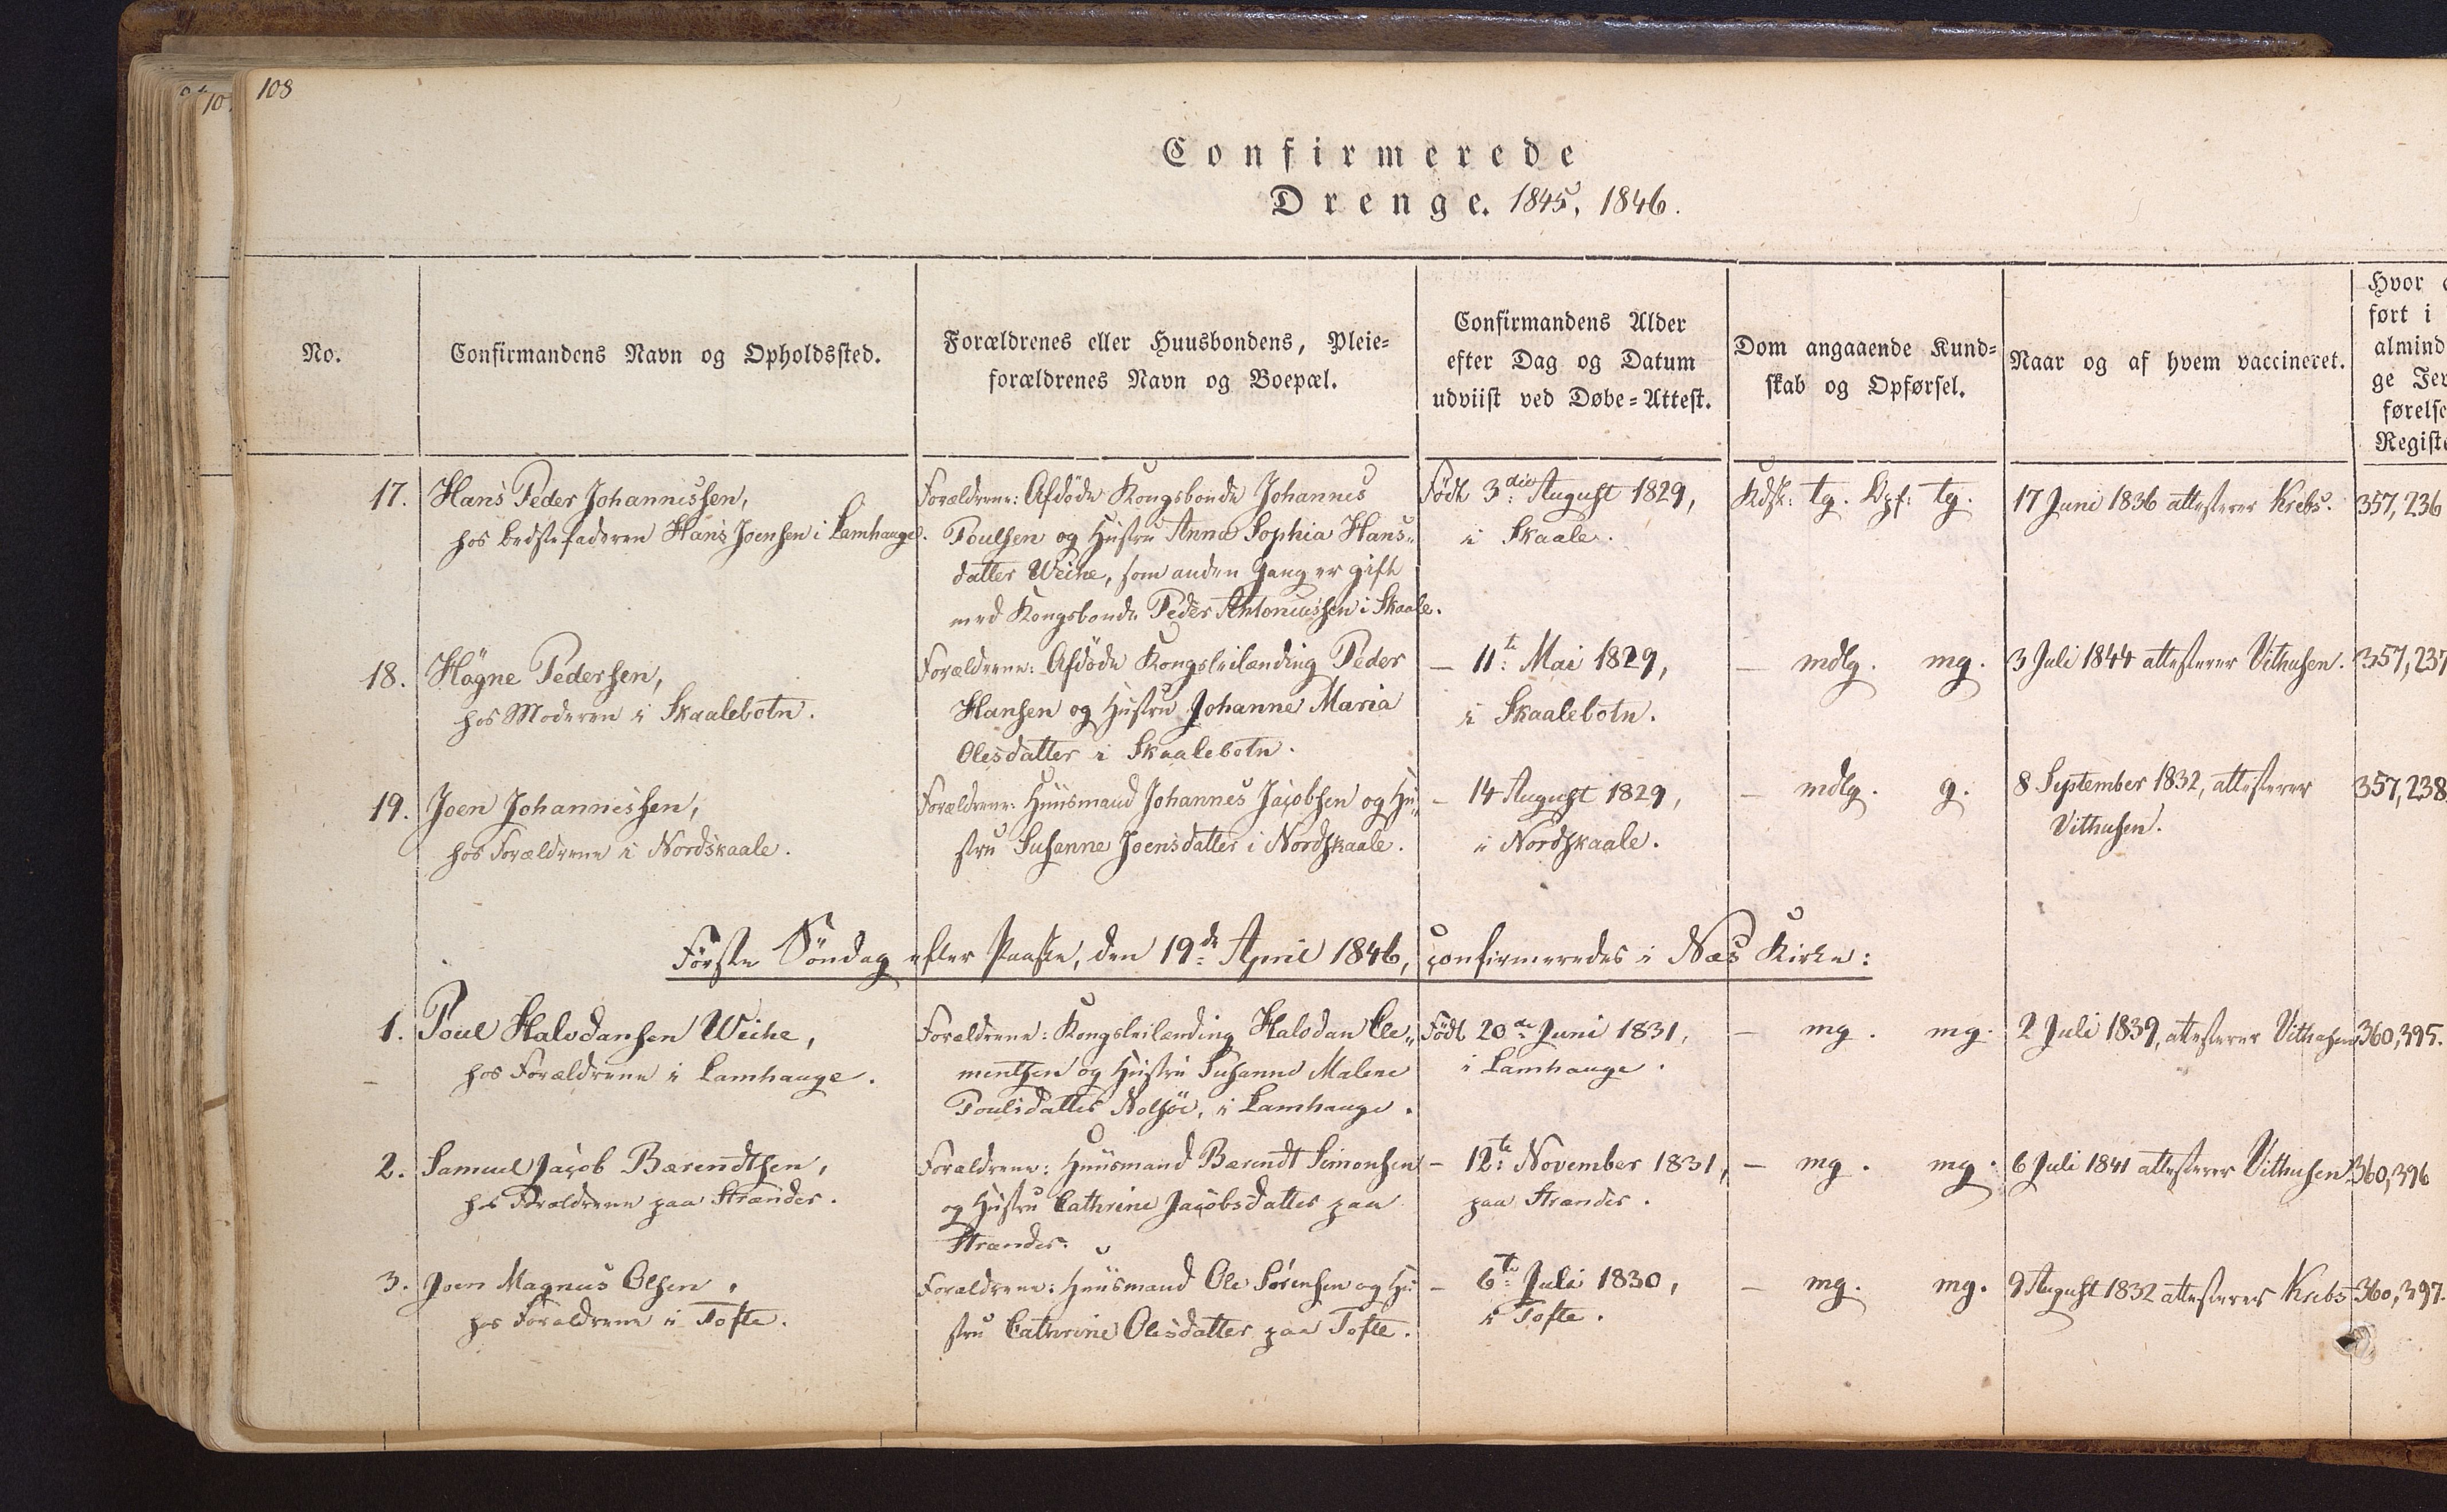 108
10
Confirmerede
Drenge. 1845, 1846.
No.
Confirmandens Navn og Opholdssted.
Forældrenes eller Huusbondens, Pleie=
forældrenes Navn og Boepæl.
Confirmandens Alder
efter Dag og Datum
udviist ved Døbe=Attest.
Dom angaaende Kund=
skab og Opførsel.
Naar og af hvem vaccineret.
Hvor
ført i
almind
ge Jev
førelse
Registe
17.
Hans Peder Johannessen,
hos Bedstefaderen Hans Joensen i Lamhauge.
Forældrene: Afdöde Kongsbonde Johannes
Poulsen og Hustru Anna Sophia Hans„
datter Weihe, som anden Gang er gift
med Kongsbonde Peder Antoniussen i Skaale.
Födt 3die August 1829,
i Skaale.
Kdsk: tg. Opf: tg.
17 Juni 1836 attesterer Krebs.
357, 236
18.
Högne Pedersen,
hos Moderen i Skaalebotn.
Forældrene: Afdöde Kongsleilænding Peder
Hansen og Hustru Johanne Maria
Olesdatter i Skaalebotn.
— 11te Mai 1829,
i Skaalebotn.
— mdlg. mg.
3 Juli 1844 attesterer Vithusen.
357, 237
19.
Joen Johannessen,
hos Forældrene i Nordskaale.
Forældrene: Huusmand Johannes Jacobsen og Hu„
stru Susanne Joensdatter i Nordskaale.
— 14 August 1829,
i Nordskaale.
— mdlg. g.
8 September 1832, attesterer
Vithusen.
357, 238
Förste Söndag efter Paaske, den 19de April 1846, confirmeredes i Næs Kirke:
1.
Poul Halvdansen Weihe,
hos Forældrene i Lamhauge.
Forældrene: Kongsleilænding Halvdan Cle„
mentsen og Hustru Susanne Malene
Poulsdatter Nolsöe, i Lamhauge.
Födt 20de Juni 1831,
i Lamhauge.
— mg. mg.
2 Juli 1839, attesterer Vithusen
360, 395.
2.
Samuel Jacob Bærendtsen,
hos Forældrene paa Strænder.
Forældrene: Huusmand Bærendt Simonsen
og Hustru Cathrine Jacobsdatter paa
Strænder.
— 12te November 1831,
paa Strænder.
— mg. mg.
6 Juli 1841 attesterer Vithusen.
360, 396
3.
Joen Magnus Olsen,
hos Forældrene i Tofte.
Forældrene: Huusmand Ole Sörensen og Hu
stru Cathrine Olesdatter paa Tofte.
— 6te Juli 1830,
i Tofte.
— mg. mg.
9 August 1832 attesterer Krebs
360, 397.